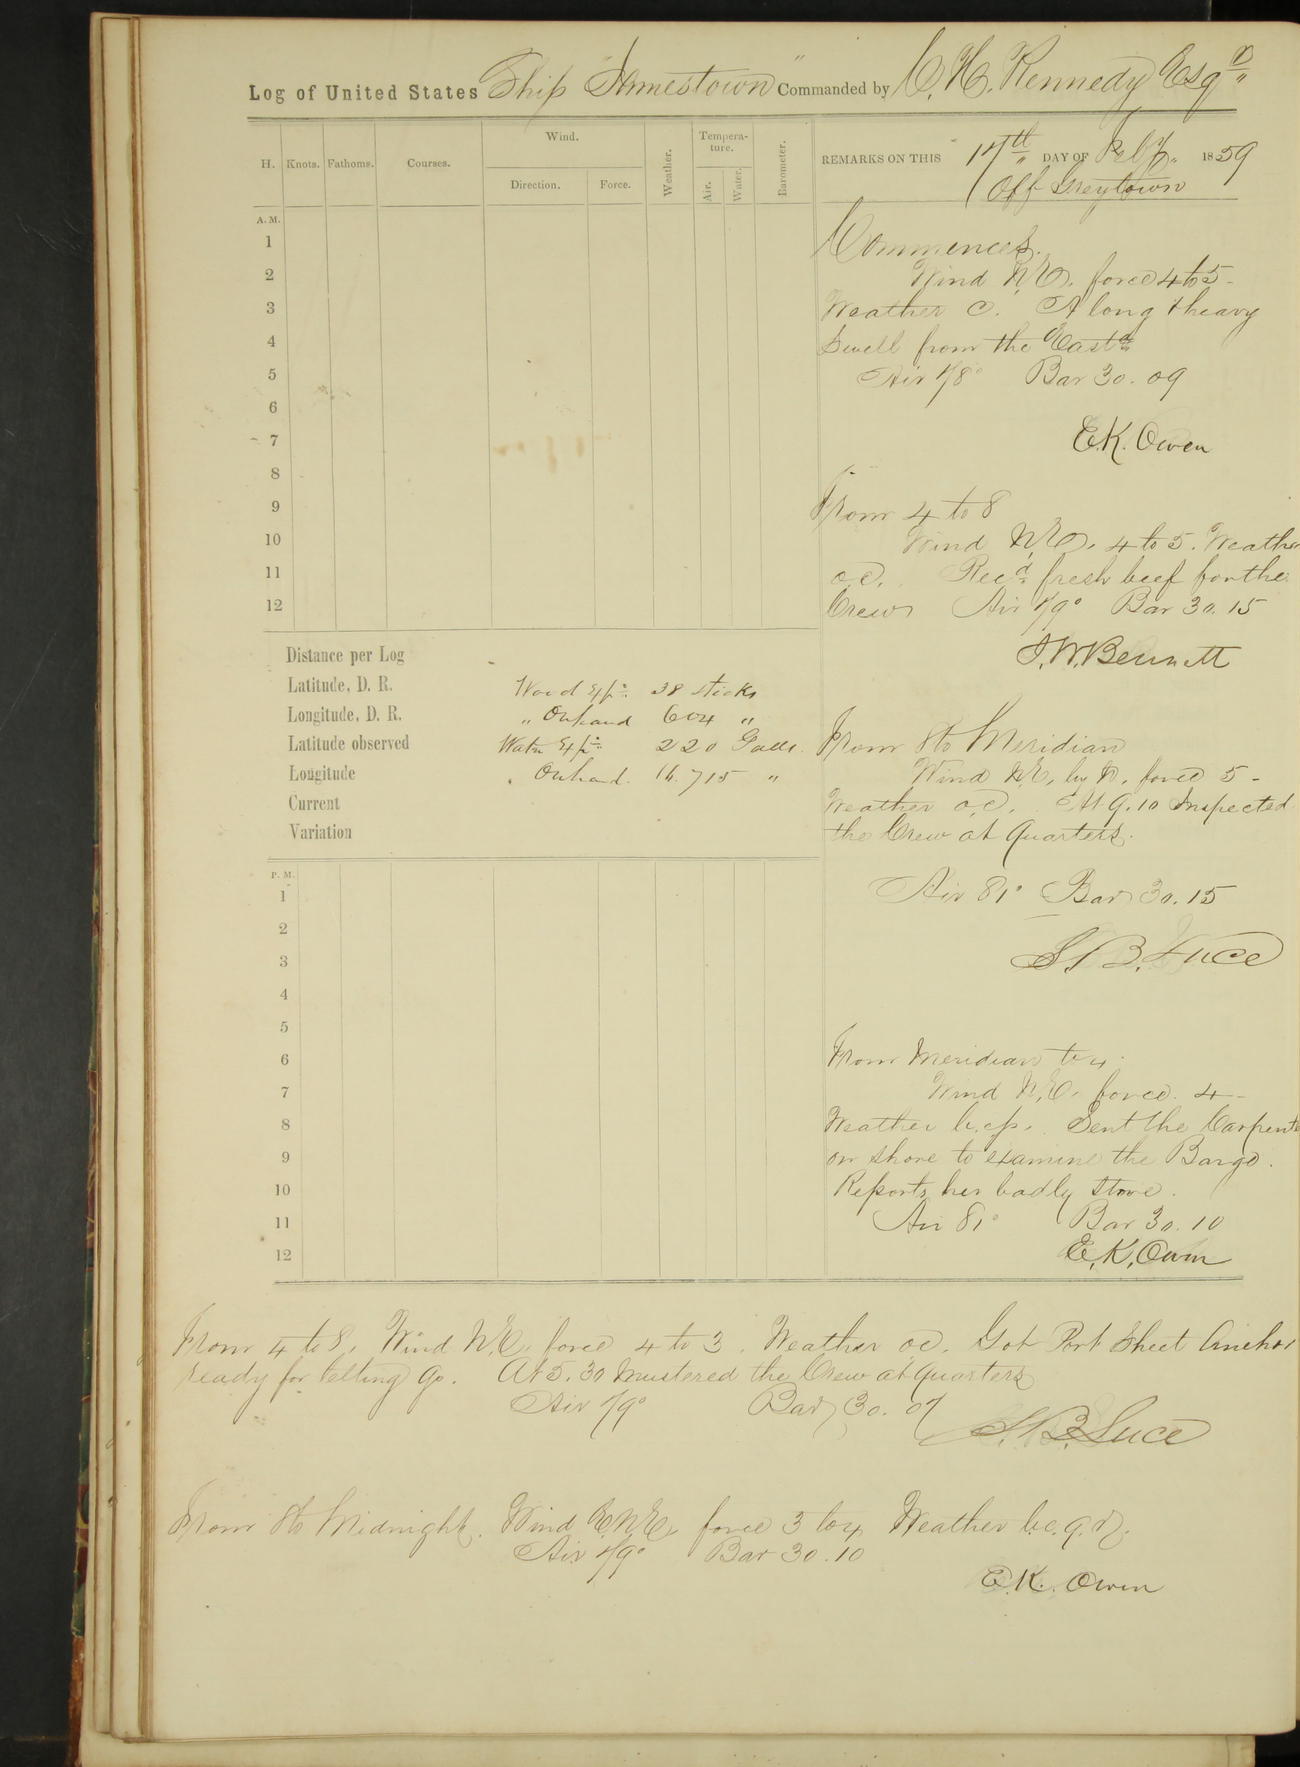 Log of United States Ship "Jamestown" Commanded by C. H. Kennedy Esqr
H. Knots. Fathoms. Courses. Wind. Direction. Force. Weather. Tempera-ture. Air. Water. Barometer.
REMARKS ON THIS 17th DAY OF Feby. 1859
Off Greytown
A. M.
1
2
3
4
5
6
7
8
9
10
11
12
Commences.
Wind N.E. force 4 to 5-
Weather c. A long & heavy
Swell from the Eastd
Air 78° Bar 30.09
E.K. Owen
From 4 to 8
Wind N.E. 4 to 5. Weather
o.c. Recd fresh beef for the
Crew Air 79° Bar 30.15
J.W. Bennett
Distance per Log
Latitude, D. R.
Longitude, D. R.
Latitude observed
Longitude
Current
Variation
Wood Exp. 38 sticks
" On hand 604 "
Water Exp. 220 Galls.
" On hand. 16.715 "
From 8 to Meridian
Wind N.E. by N. force 5-
Weather o.c. At 9.10 Inspected
the Crew at Quarters.
Air 81° Bar 30.15
S.B. Luce
P. M.
1
2
3
4
5
6
7
8
9
10
11
12
From Meridian to 4.
Wind N.E. force 4-
Weather b.c.p. Sent the Carpenter
on shore to examine the Barge.
Reports her badly stove.
Air 81° Bar 30.10
E.K. Owen
From 4 to 8. Wind N.E. force 4 to 3. Weather o.c. Got Port Sheet Anchor
ready for letting go. At 5.30 Mustered the Crew at quarters
Air 79° Bar 30.07
S.B. Luce
From 8 to Midnight. Wind E.N.E. force 3 to 4 Weather b.c.q.r.
Air 79° Bar 30.10
E.K. Owen